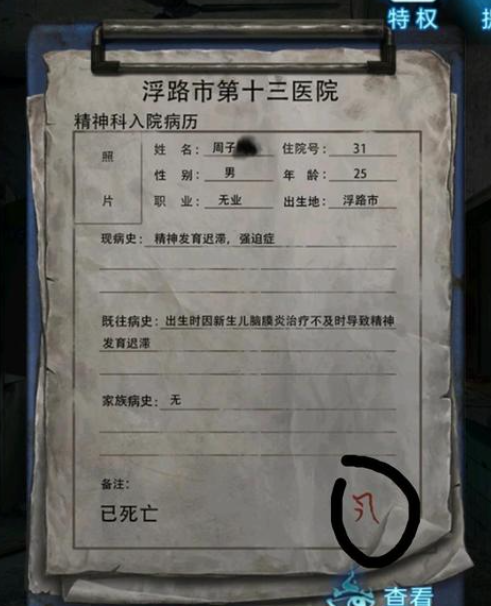 特权
浮路市第十三医院
精神科入院病历
照片
姓 名: 周子 住院号: 31
性 别: 男 年 龄: 25
职 业: 无业 出生地: 浮路市
现病史: 精神发育迟滞, 强迫症
既往病史: 出生时因新生儿脑膜炎治疗不及时导致精神
发育迟滞
家族病史: 无
备注:
已死亡
查看